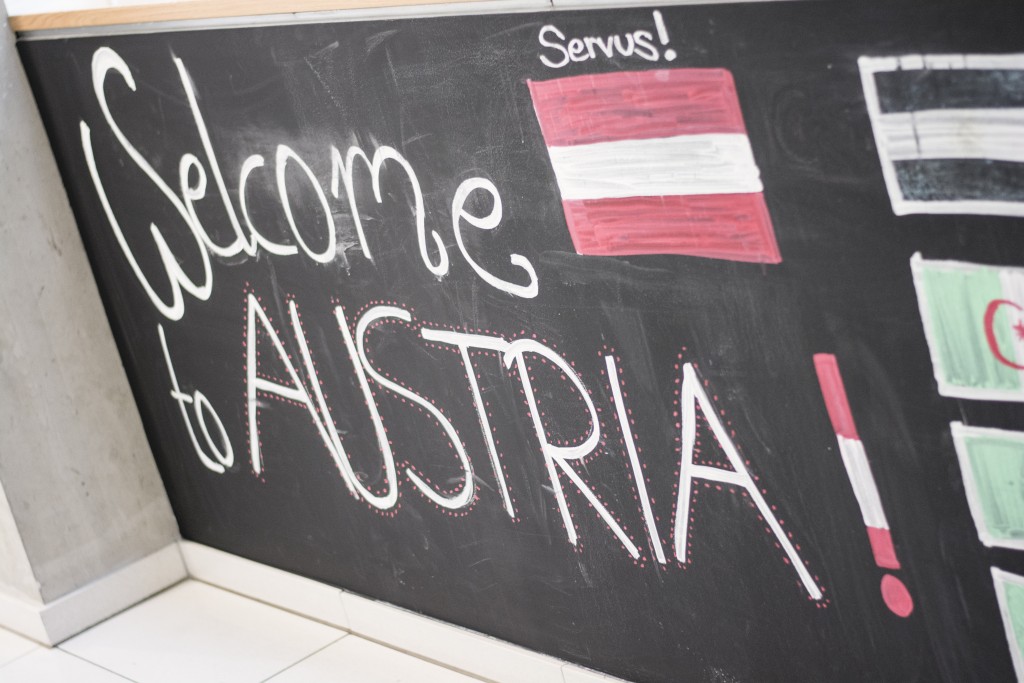 Servus!
Welcome
to AUSTRIA!